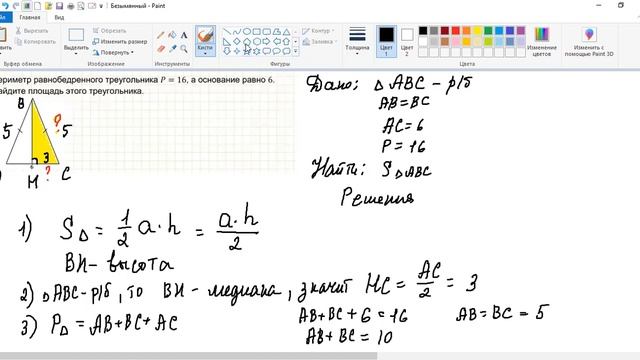 Безымянный - Paint
Вырезать
Копировать
Вставить
Выделить
Обрезать
Изменить размер
Повернуть
Кисти
Контур
Заливка
Толщина
Цвет 1
Цвет 2
Изменение цветов
Изменить с помощью Paint 3D
Буфер обмена
Изображение
Инструменты
Фигуры
Цвета
ериметр равнобедренного треугольника P = 16, а основание равно 6.
айдите площадь этого треугольника.
B
5 5 ?
3
H ? C
Дано: △ABC - р/б
AB=BC
AC=6
P=16
Найти: S△ABC
Решения
1) S△ = 1/2 a·h = a·h/2
BH - высота
2) △ABC-р/б, то BH - медиана, значит HC = AC/2 = 3
3) P△ = AB+BC+AC AB+BC+6=16 AB=BC=5
AB+BC=10